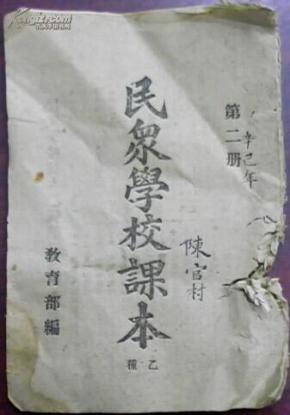 辛巳年
第二册
陳官村
民眾學校課本
乙種
教育部編